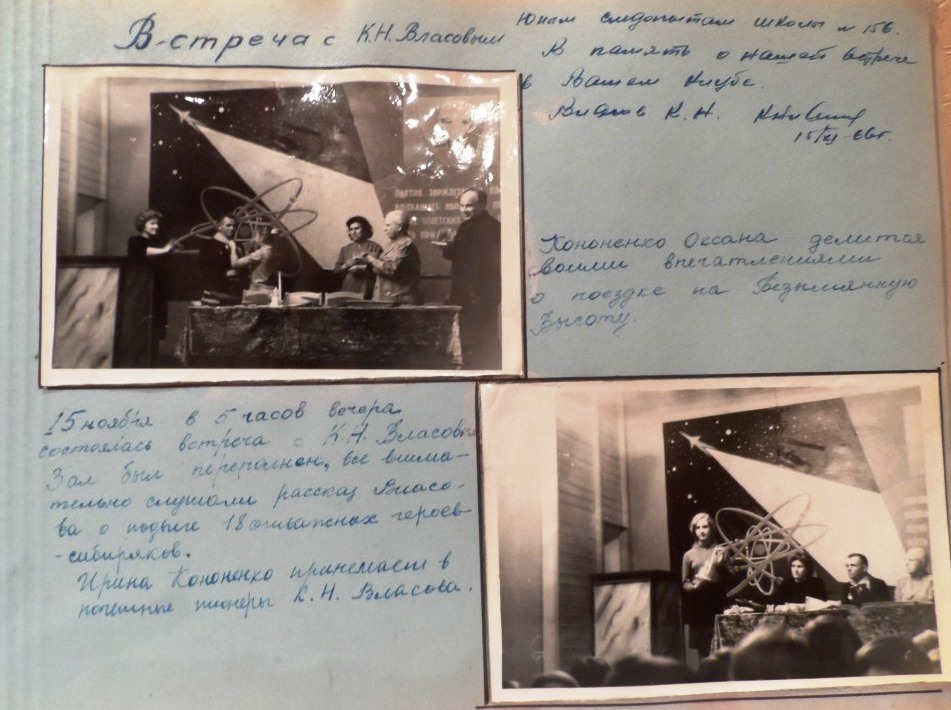 Встреча с К.Н. Власовым
Юным следопытам школы № 156.
В память о нашей встрече
в Вашем клубе.
Власов К. Н.
15/XI-66г.
ПАРТИЯ ТОРЖЕСТВ
СОВЕТСКИХ
Кононенко Оксана делится
своими впечатлениями
о поездке на Безымянную
Высоту.
15 ноября в 5 часов вечера
состоялась встреча с К.Н. Власовым
Зал был переполнен, все внима-
тельно слушали рассказ Власо-
ва о подвиге 18 отважных героев
-сибиряков.
Ирина Кононенко принимает в
почетные пионеры К.Н. Власова.